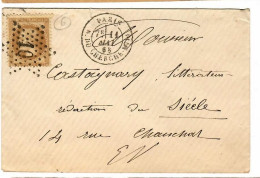 PARIS
R. DU CHERCHE MIDI
Monsieur
Castagnary, littérateur
rédaction du Siècle
14 rue Chauchat
EV